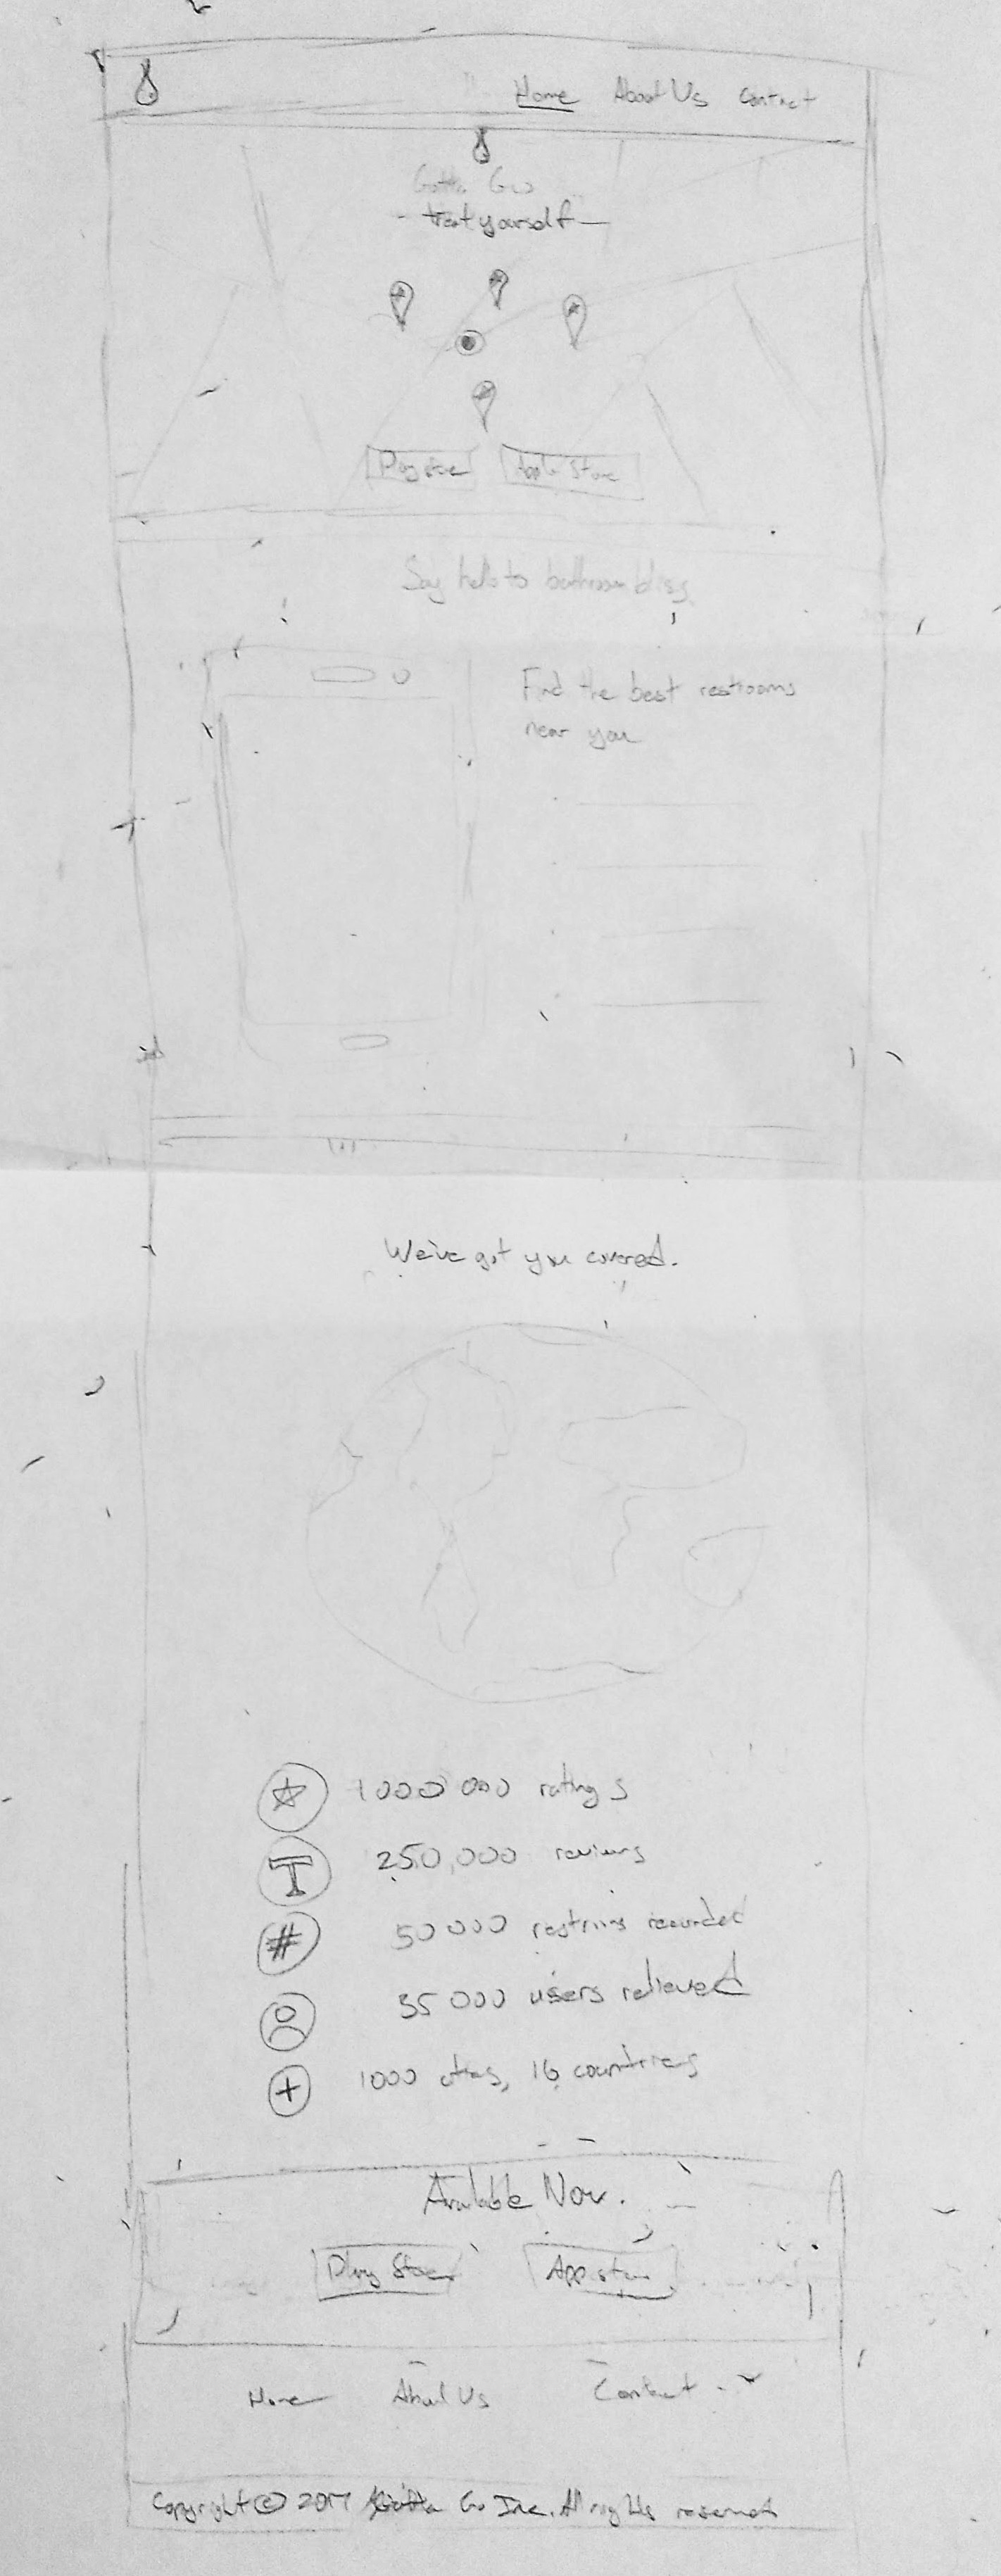 Home About Us Contact
Gotta Go
- treat yourself -
Play Store Apple Store
Say hello to bathroom bliss.
Find the best restrooms
near you
We've got you covered.
1000 000 ratings
250,000 reviews
50 000 restrooms recorded
35 000 users relieved
1000 cities, 16 countries
Available Now.
Play Store App store
Home About Us Contact
Copyright © 2017 Gotta Go Inc. All rights reserved